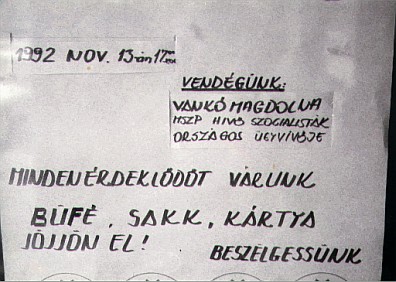 1992 NOV. 13-án 17
VENDÉGÜNK:
VANKÓ MAGDOLNA
MSZP HIVŐ SZOCIALISTÁK
ORSZÁGOS ÜGYVIVŐJE
MINDEN ÉRDEKLŐDŐT VÁRUNK
BÜFÉ, SAKK, KÁRTYA
JÖJJÖN EL!
BESZÉLGESSÜNK